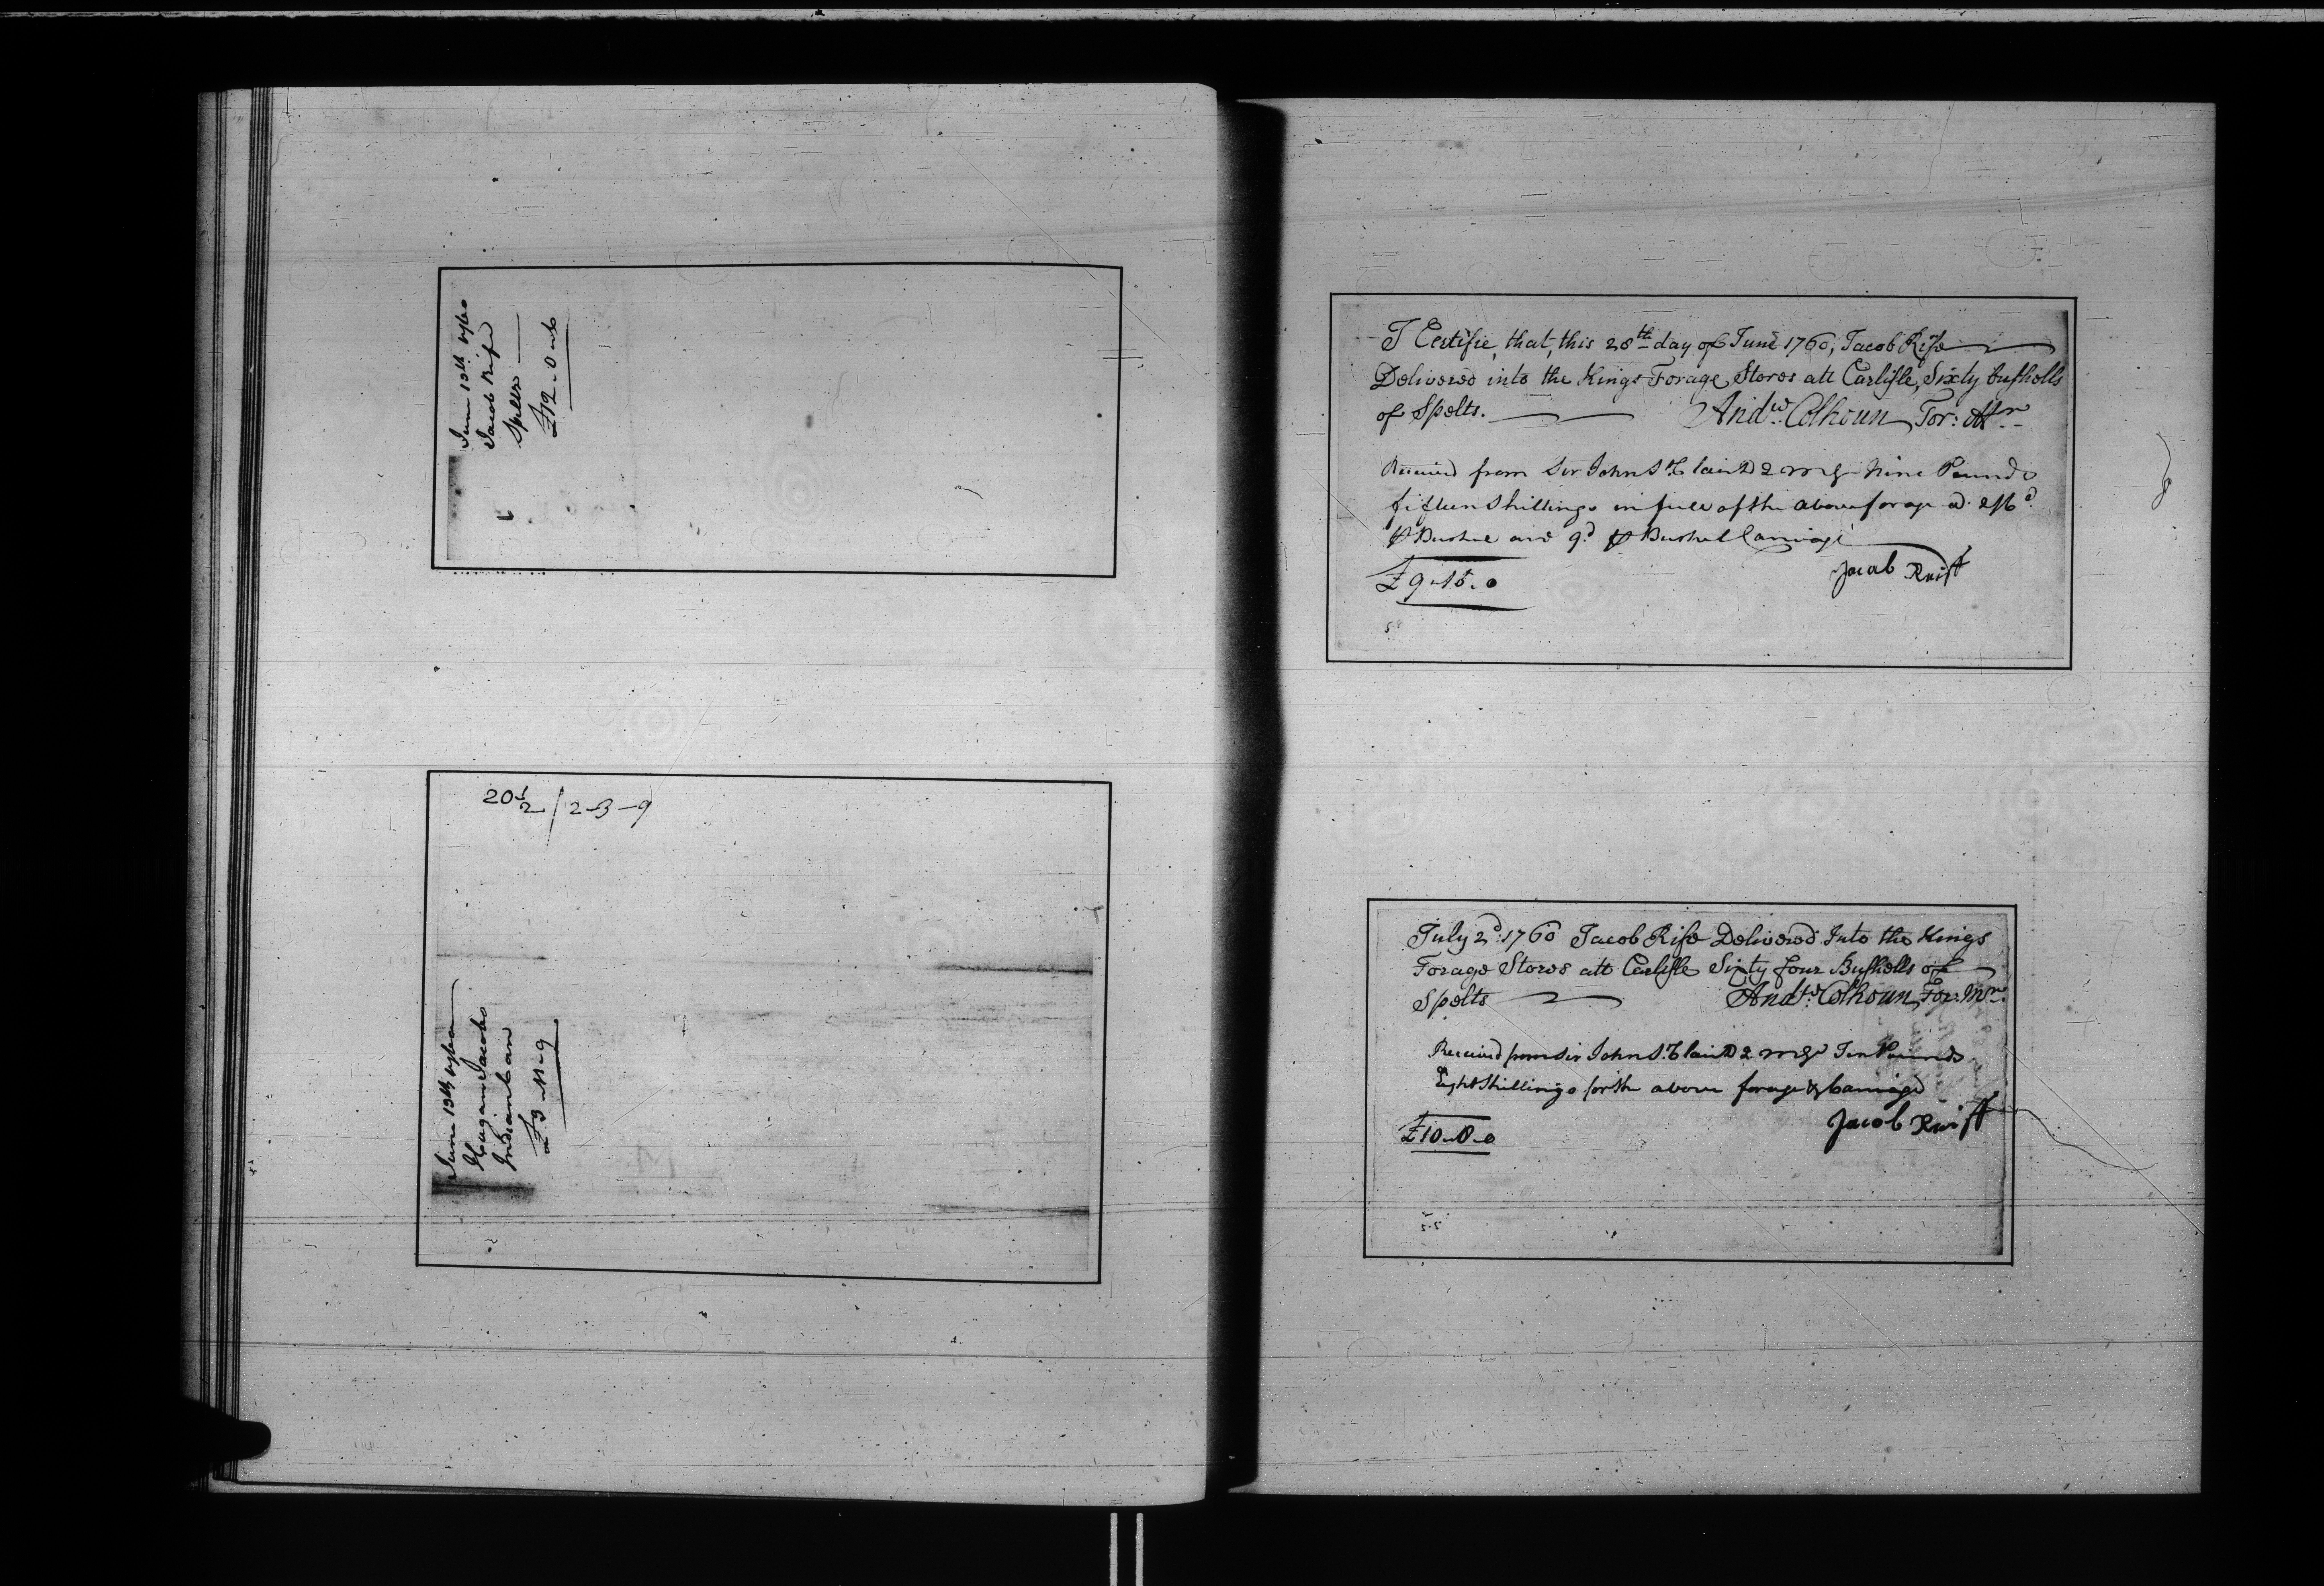 June 13th 1760
Jacob Rife
Spelts
£12-0-6
20½ / 2-3-9
June 13th 1760
Hugan Jacobs
Indian Corn
£3-11-9
I Certifie, that, this 28th day of June 1760, Jacob Rife
Delivered into the Kings Forage Stores att Carlisle, Sixty bushells
of Spelts. Andw. Colhoun For: Mr.
Received from Sir John St Clair D 2 M Gl Nine Pounds
fifteen Shillings in full of the above forage a 2/6d
⅌ Bushel and 9d ⅌ Bushel Carriage
£9-15-0 Jacob Reiff
July 2d: 1760 Jacob Rife Delivered Into the Kings
Forage Stores att Carlisle Sixty four Bushells of
Spelts Andw: Colhoun For: Mr.
Received from Sir John St Clair D 2 M Gl Ten Pounds
Eight Shillings for the above forage & Carriage
£10-8-0 Jacob Reiff